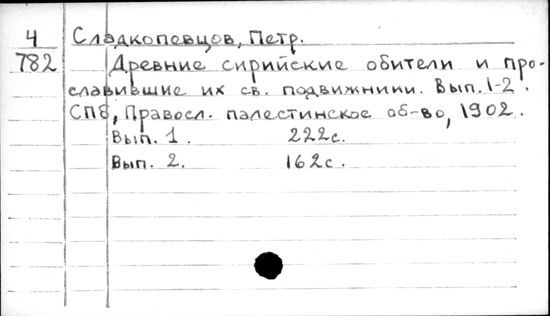 4 Сладкопевцов, Петр.
782 Древние сирийские обители и про-
славившие их св. подвижники. Вып. 1-2.
СПб, Правосл. палестинское об-во, 1902.
Вып. 1. 222с.
Вып. 2. 162с.